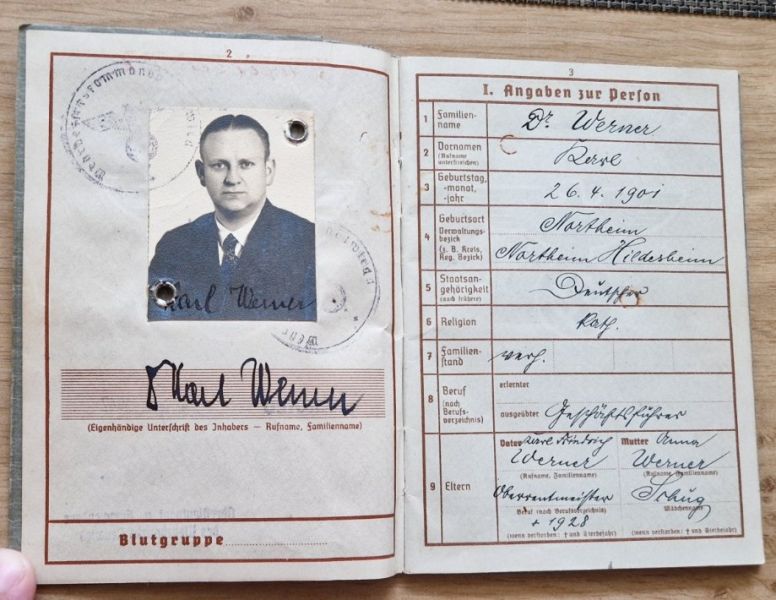 2
Karl Werner
Dr Karl Werner
(Eigenhändige Unterschrift des Inhabers — Rufname, Familienname)
Blutgruppe
3
I. Angaben zur Person
1 Familien-
name
Dr. Werner
2 Vornamen
(Rufname
unterstreichen)
Karl
3 Geburtstag,
-monat,
-jahr
26. 4. 1901
4 Geburtsort
Verwaltungs-
bezirk
(z. B. Kreis,
Reg. Bezirk)
Northeim
Northeim Hildesheim
5 Staatsan-
gehörigkeit
(auch frühere)
Deutscher
6 Religion
kath.
7 Familien-
stand
verh.
8 Beruf
(nach
Berufs-
verzeichnis)
erlernter
ausgeübter Geschäftsführer
9 Eltern
Vater Karl Friedrich
Werner
(Rufname, Familienname)
Oberrentmeister
Beruf (nach Berufsverzeichnis)
+ 1928
(wenn verstorben: † und Sterbejahr)
Mutter Anna
Werner
(Rufname, Familienname)
Schug
Mädchenname
(wenn verstorben: † und Sterbejahr)